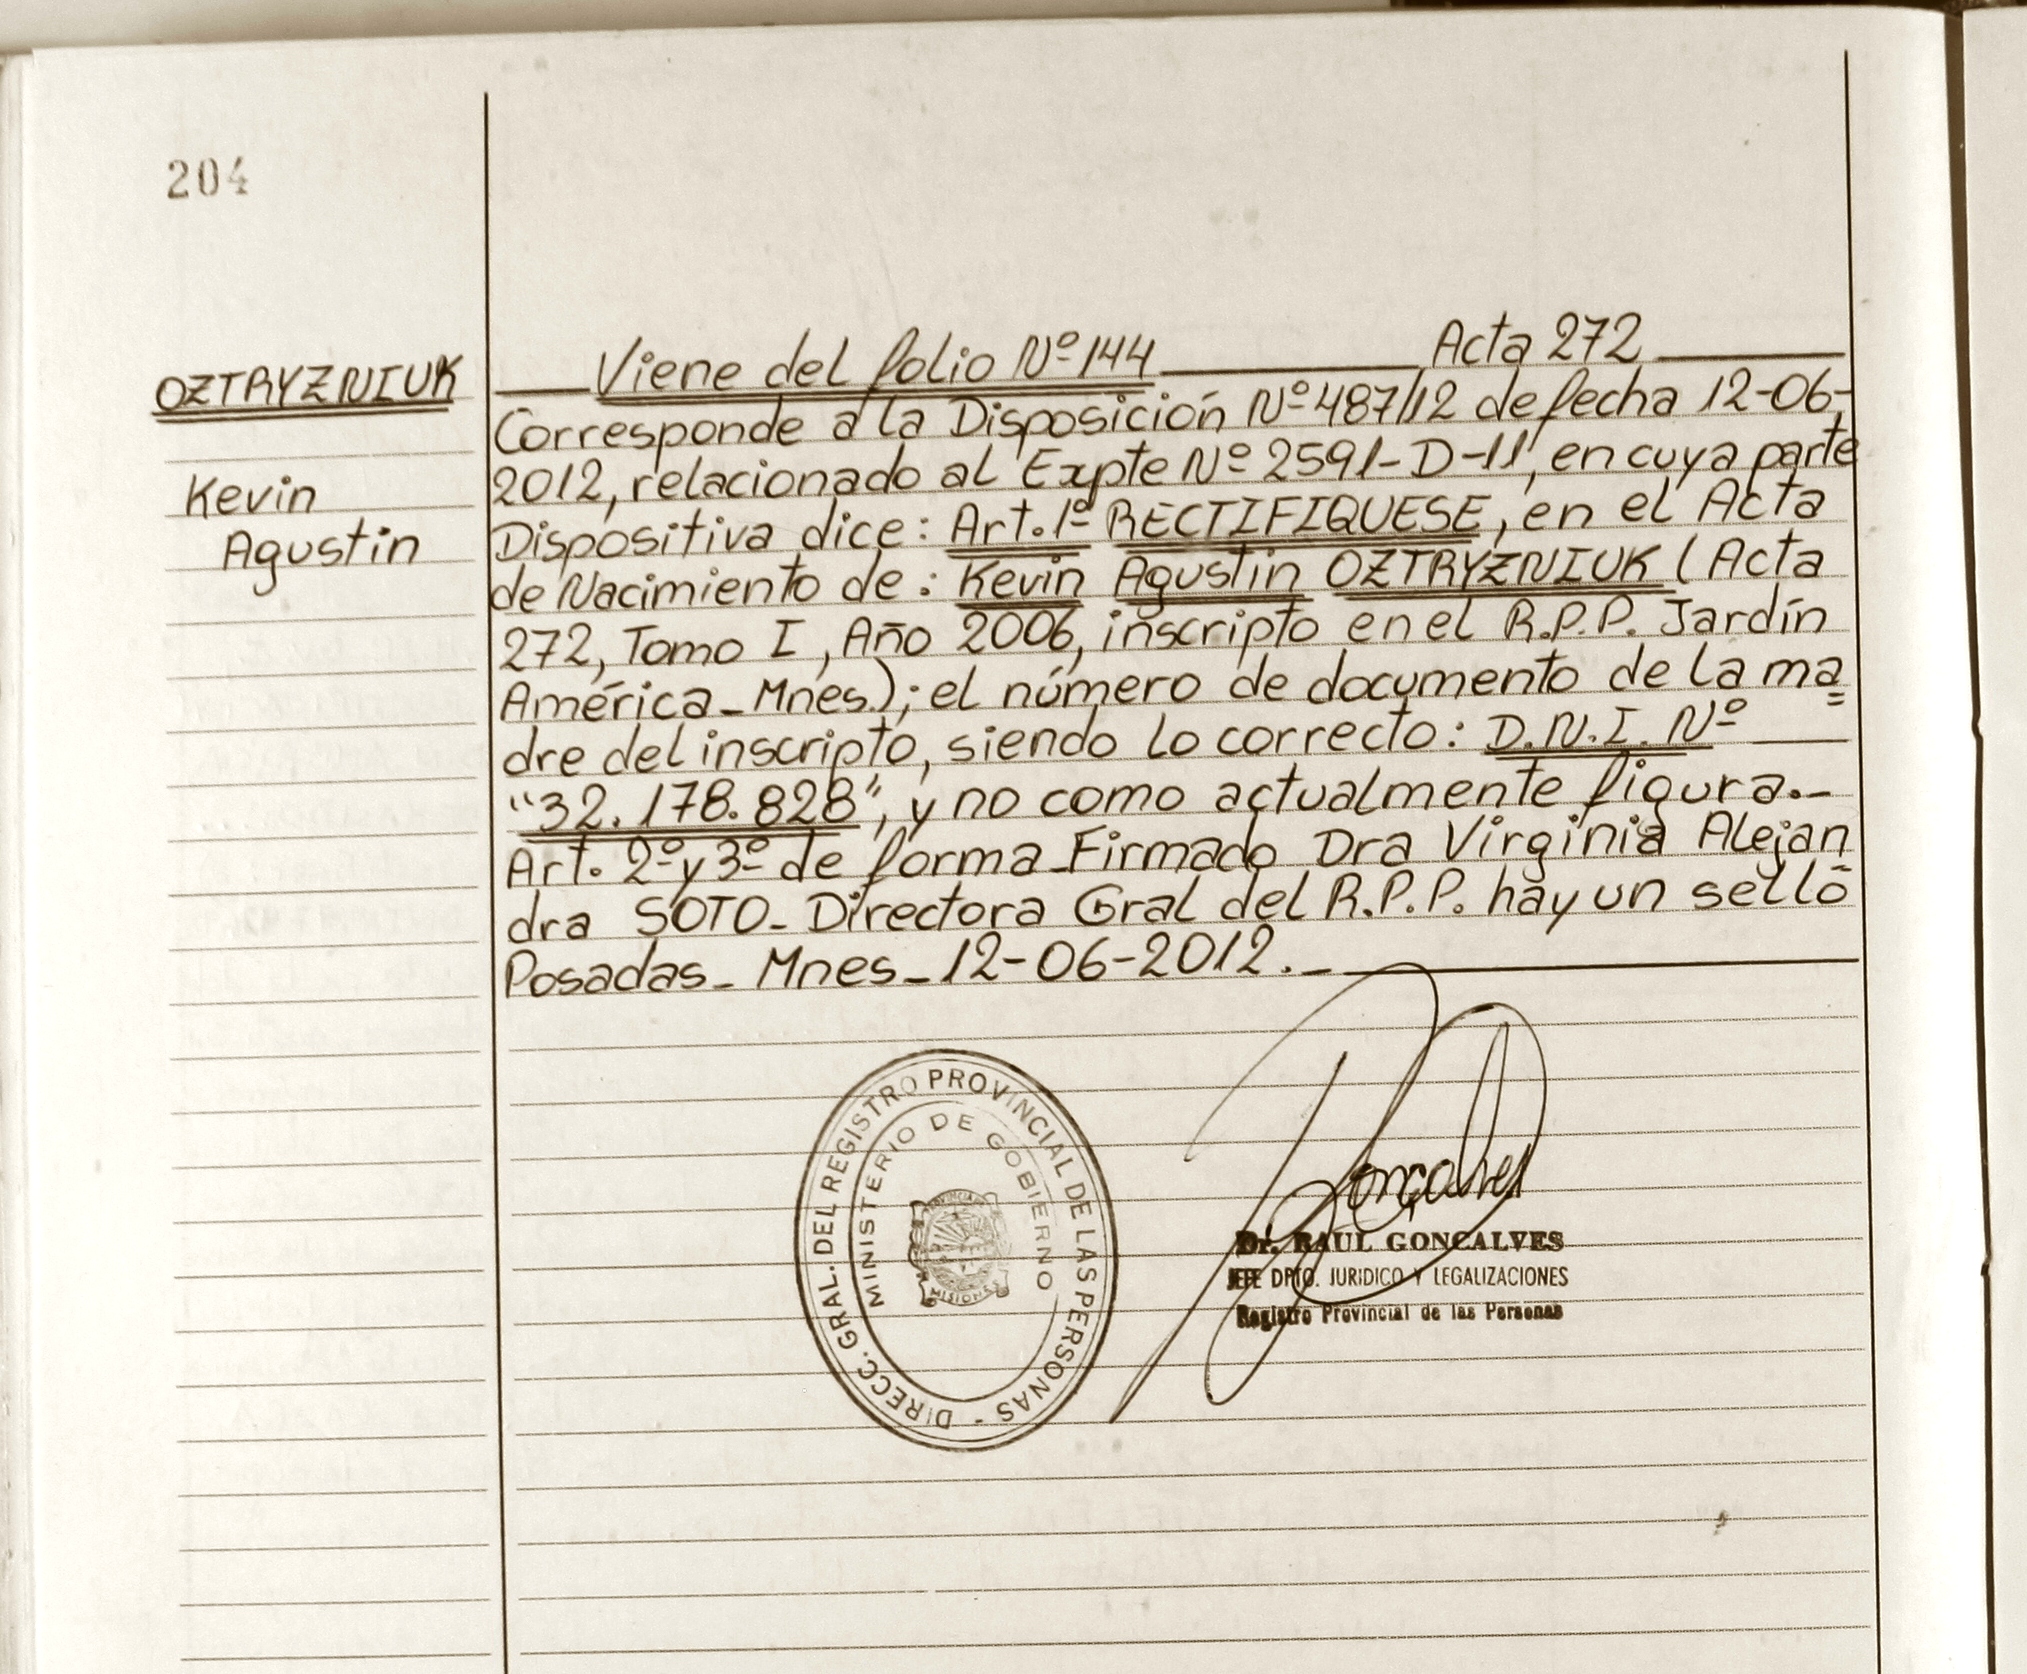 204
OZTRYZNIUK
Kevin
Agustin
Viene del folio Nº 144 Acta 272
Corresponde a la Disposición Nº 487/12 de fecha 12-06-
2012, relacionado al Expte Nº 2591-D-11, en cuya parte
Dispositiva dice: Art. 1º RECTIFIQUESE, en el Acta
de Nacimiento de: Kevin Agustin OZTRYZNIUK (Acta
272, Tomo I, Año 2006, inscripto en el R.P.P. Jardín
América-Mnes.); el número de documento de la ma=
dre del inscripto, siendo lo correcto: D.N.I. Nº
"32.178.828", y no como actualmente figura.-
Art. 2º y 3º de forma-Firmado Dra Virginia Alejan
dra SOTO-Directora Gral del R.P.P. hay un sello
Posadas-Mnes-12-06-2012.-
DIRECC. GRAL. DEL REGISTRO PROVINCIAL DE LAS PERSONAS -
MINISTERIO DE GOBIERNO
PROVINCIA DE
MISIONES
Gonçalves
Dr. RAUL GONCALVES
JEFE DPTO. JURIDICO Y LEGALIZACIONES
Registro Provincial de las Personas